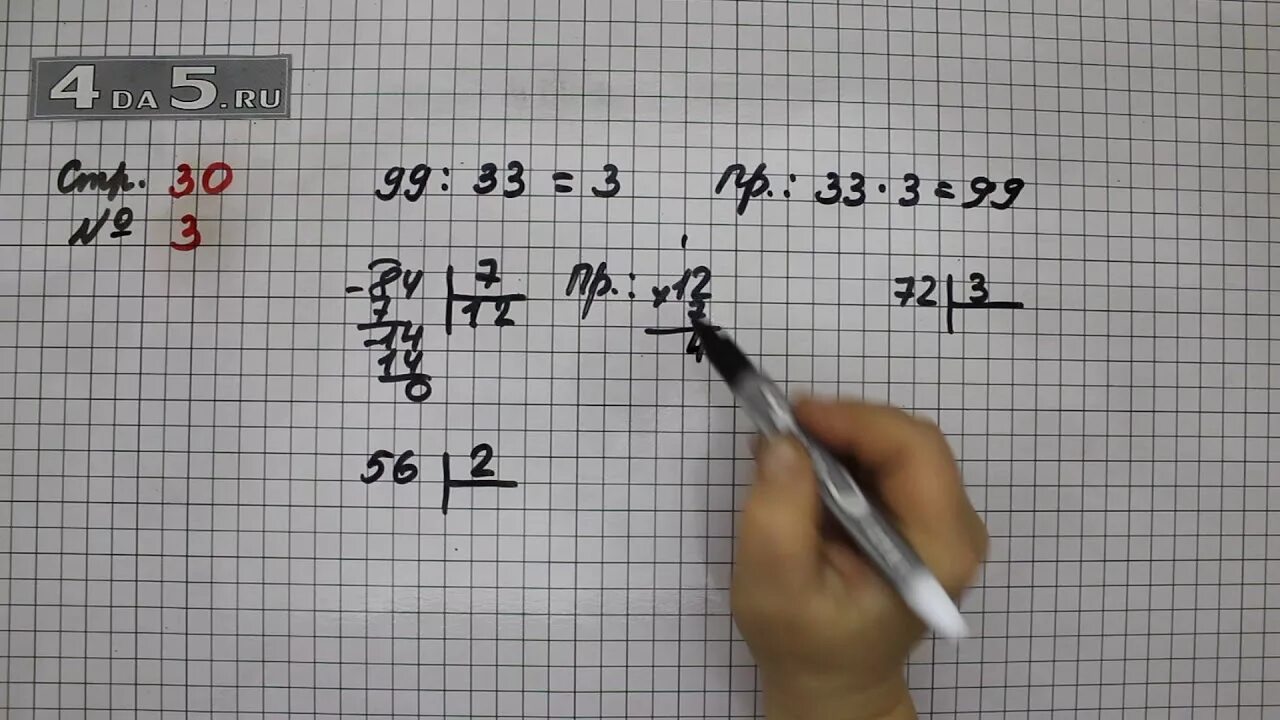 4 DA 5.RU
Стр. 30
№ 3
99 : 33 = 3
пр.: 33 · 3 = 99
- 84 | 7
7 | 12
- 14
14
0
пр.: 1
× 12
7
4
72 | 3
56 | 2